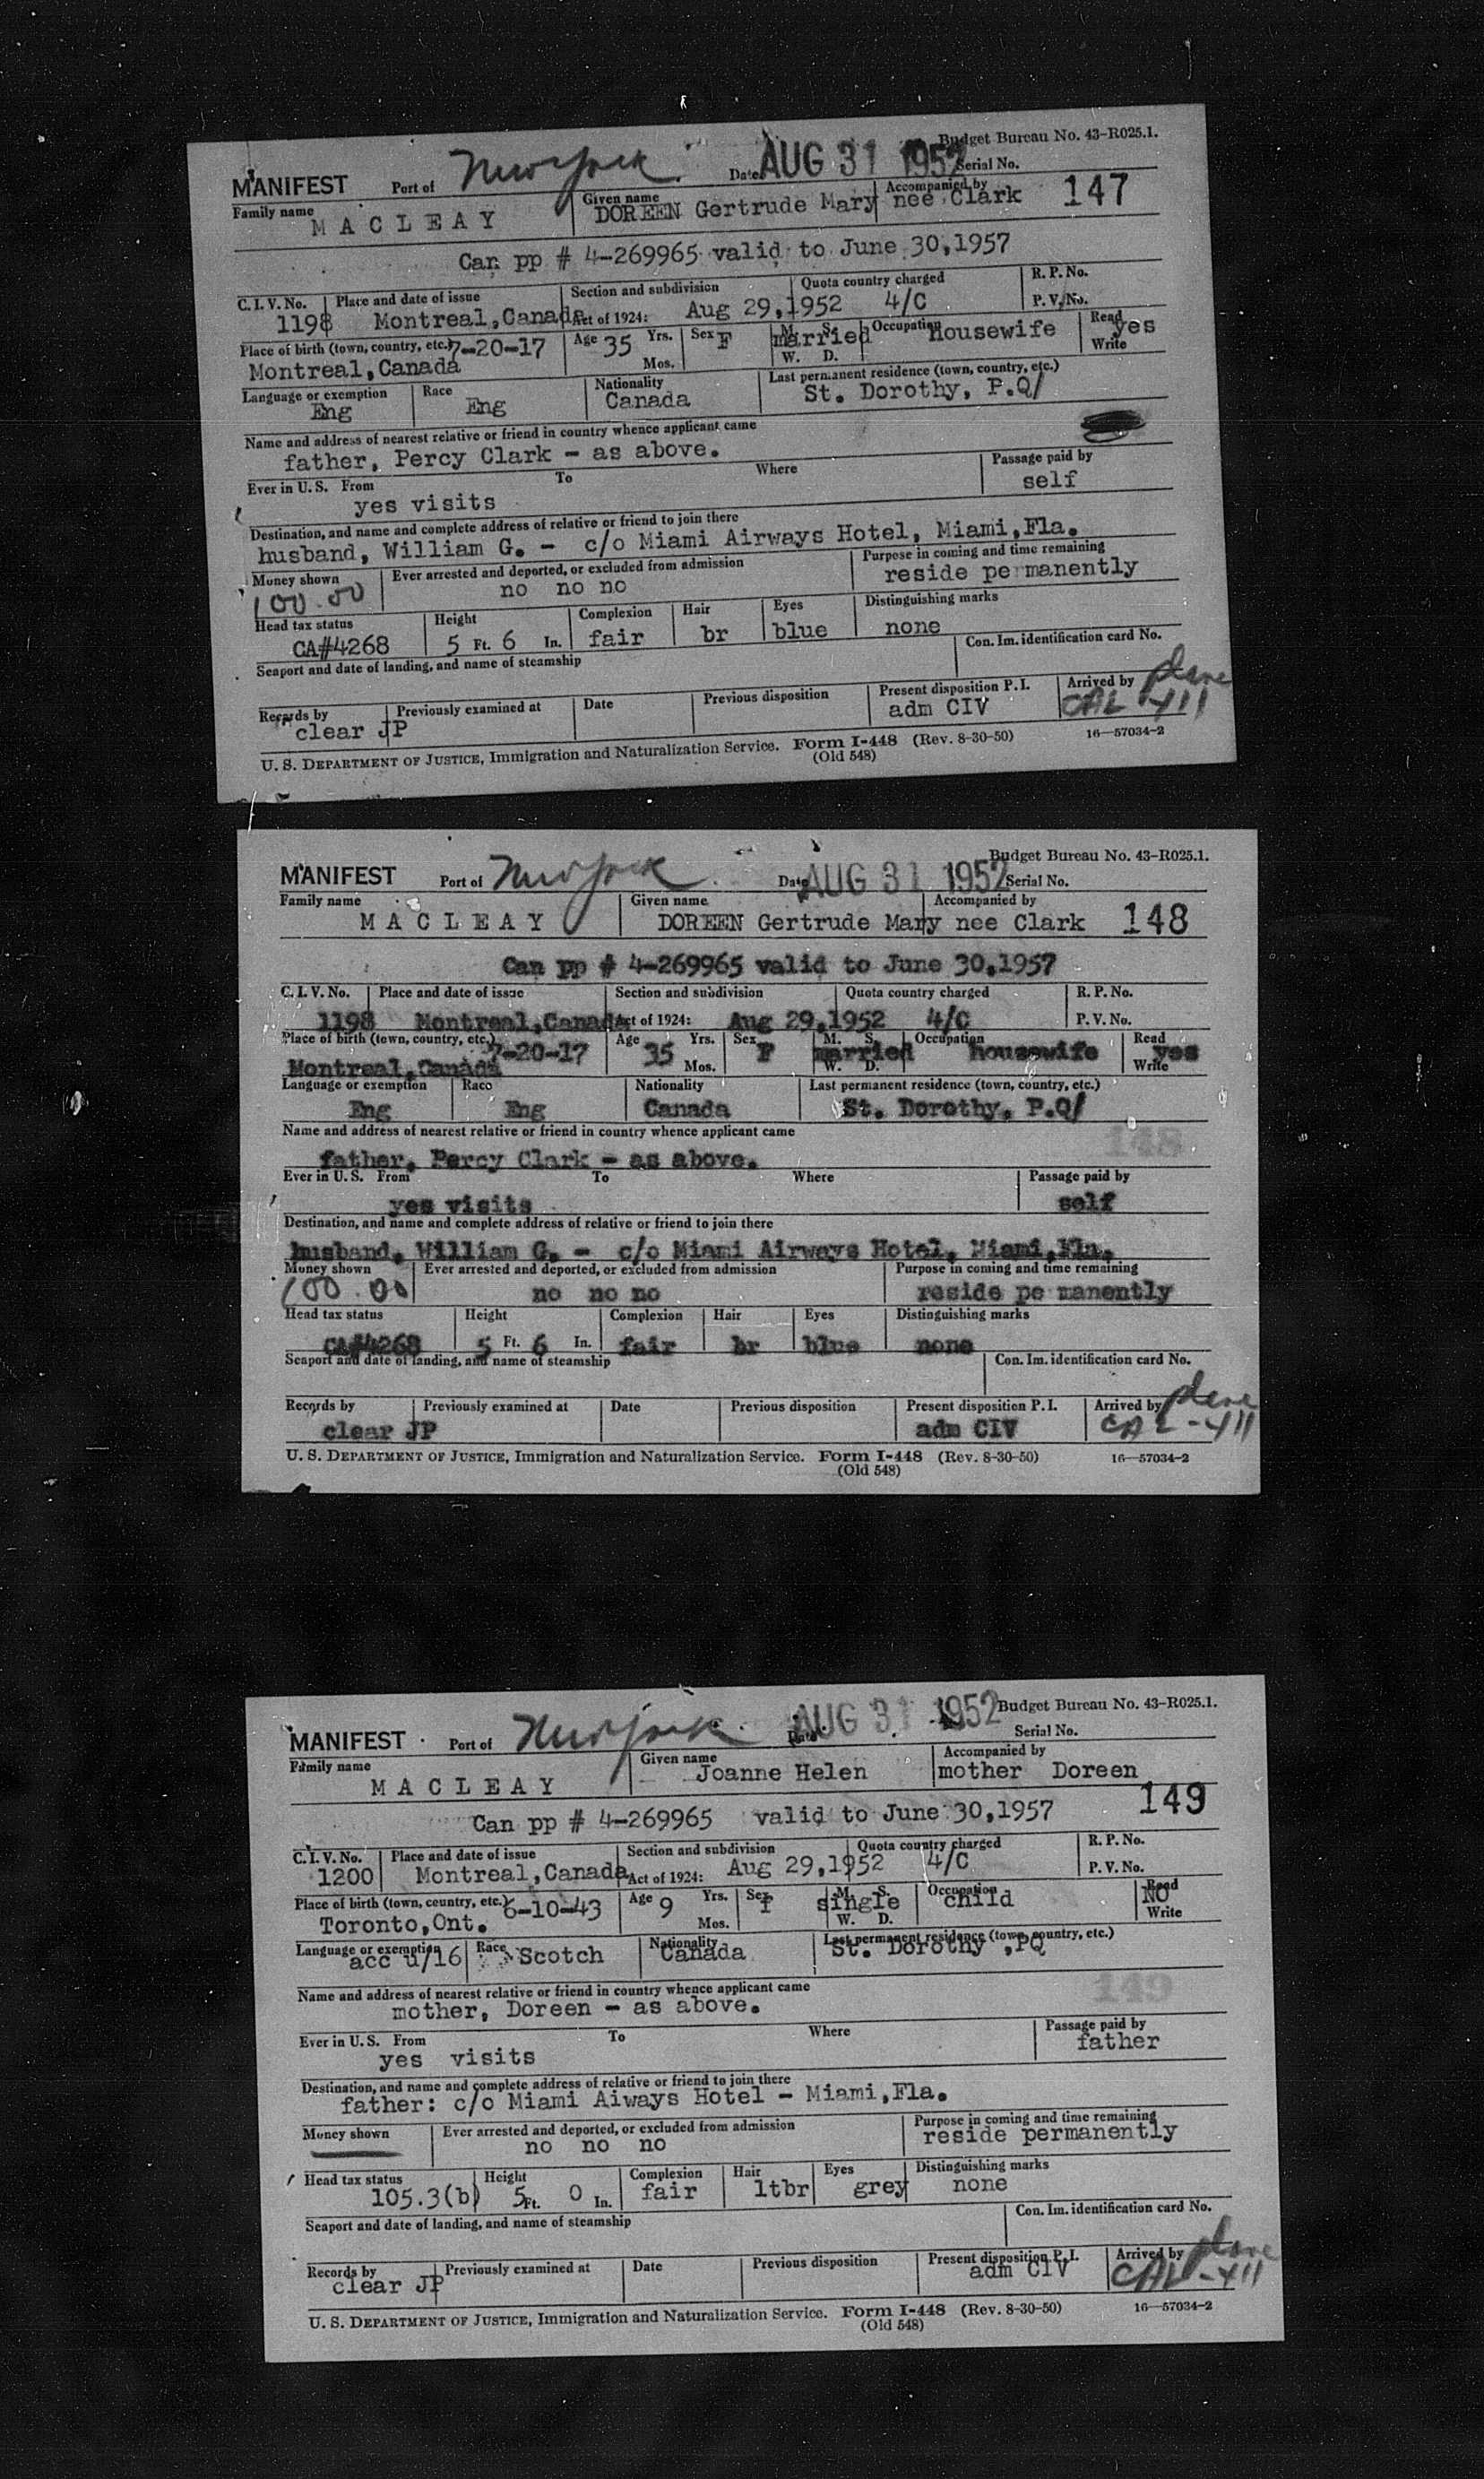 Budget Bureau No. 43-R025.1.
MANIFEST Port of New York Date AUG 31 1952 Serial No.
Family name Given name Accompanied by
MACLEAY DOREEN Gertrude Mary nee Clark 147
Can pp # 4-269965 valid to June 30,1957
C. I. V. No. Place and date of issue Section and subdivision Quota country charged R. P. No.
1198 Montreal,Canada Act of 1924: Aug 29,1952 4/C P. V. No.
Place of birth (town, country, etc.) 7-20-17 Age 35 Yrs. Sex F M. S. married Occupation housewife Read yes
Montreal,Canada Mos. W. D. Write
Language or exemption Race Nationality Last permanent residence (town, country, etc.)
Eng Eng Canada St. Dorothy, P.Q/
Name and address of nearest relative or friend in country whence applicant came
father, Percy Clark - as above.
Ever in U. S. From To Where Passage paid by
yes visits self
Destination, and name and complete address of relative or friend to join there
husband, William G. - c/o Miami Airways Hotel, Miami,Fla.
Money shown Ever arrested and deported, or excluded from admission Purpose in coming and time remaining
100.00 no no no reside pe manently
Head tax status Height Complexion Hair Eyes Distinguishing marks
CA#4268 5 Ft. 6 In. fair br blue none
Seaport and date of landing, and name of steamship Con. Im. identification card No.
Records by Previously examined at Date Previous disposition Present disposition P. I. Arrived by plane
clear JP adm CIV CAL-411
U. S. DEPARTMENT OF JUSTICE, Immigration and Naturalization Service. Form I-448 (Rev. 8-30-50) 16—57034-2
(Old 548)
Budget Bureau No. 43-R025.1.
MANIFEST Port of New York Date AUG 31 1952 Serial No.
Family name Given name Accompanied by
MACLEAY DOREEN Gertrude Mary nee Clark 148
Can pp # 4-269965 valid to June 30,1957
C. I. V. No. Place and date of issue Section and subdivision Quota country charged R. P. No.
1198 Montreal,Canada Act of 1924: Aug 29,1952 4/C P. V. No.
Place of birth (town, country, etc.) 7-20-17 Age 35 Yrs. Sex F M. S. married Occupation housewife Read yes
Montreal,Canada Mos. W. D. Write
Language or exemption Race Nationality Last permanent residence (town, country, etc.)
Eng Eng Canada St. Dorothy, P.Q/
Name and address of nearest relative or friend in country whence applicant came 148
father, Percy Clark - as above.
Ever in U. S. From To Where Passage paid by
yes visits self
Destination, and name and complete address of relative or friend to join there
husband, William G. - c/o Miami Airways Hotel, Miami,Fla.
Money shown Ever arrested and deported, or excluded from admission Purpose in coming and time remaining
100.00 no no no reside pe manently
Head tax status Height Complexion Hair Eyes Distinguishing marks
CA#4268 5 Ft. 6 In. fair br blue none
Seaport and date of landing, and name of steamship Con. Im. identification card No.
Records by Previously examined at Date Previous disposition Present disposition P. I. Arrived by plane
clear JP adm CIV CAL-411
U. S. DEPARTMENT OF JUSTICE, Immigration and Naturalization Service. Form I-448 (Rev. 8-30-50) 16—57034-2
(Old 548)
Budget Bureau No. 43-R025.1.
MANIFEST Port of New York Date AUG 31 1952 Serial No.
Family name Given name Accompanied by
MACLEAY Joanne Helen mother Doreen
Can pp # 4-269965 valid to June 30,1957 149
C. I. V. No. Place and date of issue Section and subdivision Quota country charged R. P. No.
1200 Montreal,Canada Act of 1924: Aug 29,1952 4/C P. V. No.
Place of birth (town, country, etc.) 6-10-43 Age 9 Yrs. Sex f M. S. single Occupation child Read NO
Toronto,Ont. Mos. W. D. Write
Language or exemption Race Nationality Last permanent residence (town, country, etc.)
acc u/16 Scotch Canada St. Dorothy ,PQ
Name and address of nearest relative or friend in country whence applicant came 149
mother, Doreen - as above.
Ever in U. S. From To Where Passage paid by
yes visits father
Destination, and name and complete address of relative or friend to join there
father: c/o Miami Aiways Hotel - Miami,Fla.
Money shown Ever arrested and deported, or excluded from admission Purpose in coming and time remaining
no no no reside permanently
Head tax status Height Complexion Hair Eyes Distinguishing marks
105.3(b) 5 Ft. 0 In. fair ltbr grey none
Seaport and date of landing, and name of steamship Con. Im. identification card No.
Records by Previously examined at Date Previous disposition Present disposition P. I. Arrived by plane
clear JP adm CIV CAL-411
U. S. DEPARTMENT OF JUSTICE, Immigration and Naturalization Service. Form I-448 (Rev. 8-30-50) 16—57034-2
(Old 548)